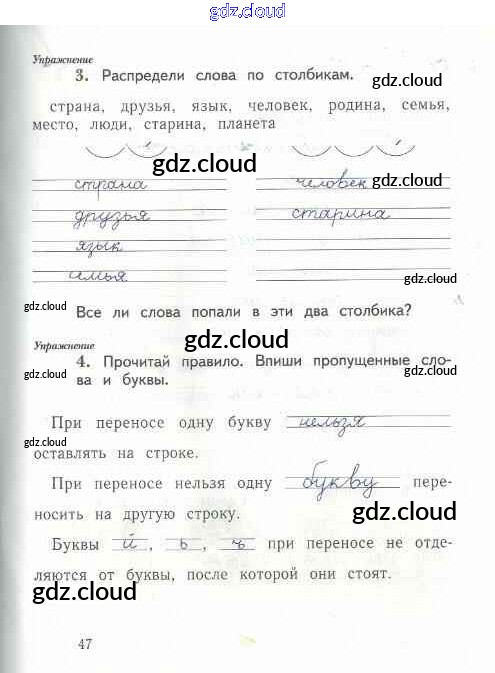 https://gdz.cloud
Упражнение
3. Распредели слова по столбикам.
gdz.cloud
страна, друзья, язык, человек, родина, семья,
место, люди, старина, планета
gdz.cloud
gdz.cloud
страна человек gdz.cloud
друзья старина
язык
семья
gdz.cloud gdz.cloud
Все ли слова попали в эти два столбика?
gdz.cloud
Упражнение
4. Прочитай правило. Впиши пропущенные сло-
gdz.cloud gdz.cloud
ва и буквы.
При переносе одну букву нельзя
gdz.cloud
оставлять на строке.
При переносе нельзя одну букву пере-
носить на другую строку.
gdz.cloud
Буквы й, ь, ъ при переносе не отде-
gdz.cloud
ляются от буквы, после которой они стоят.
gdz.cloud
47
gdz.cloud